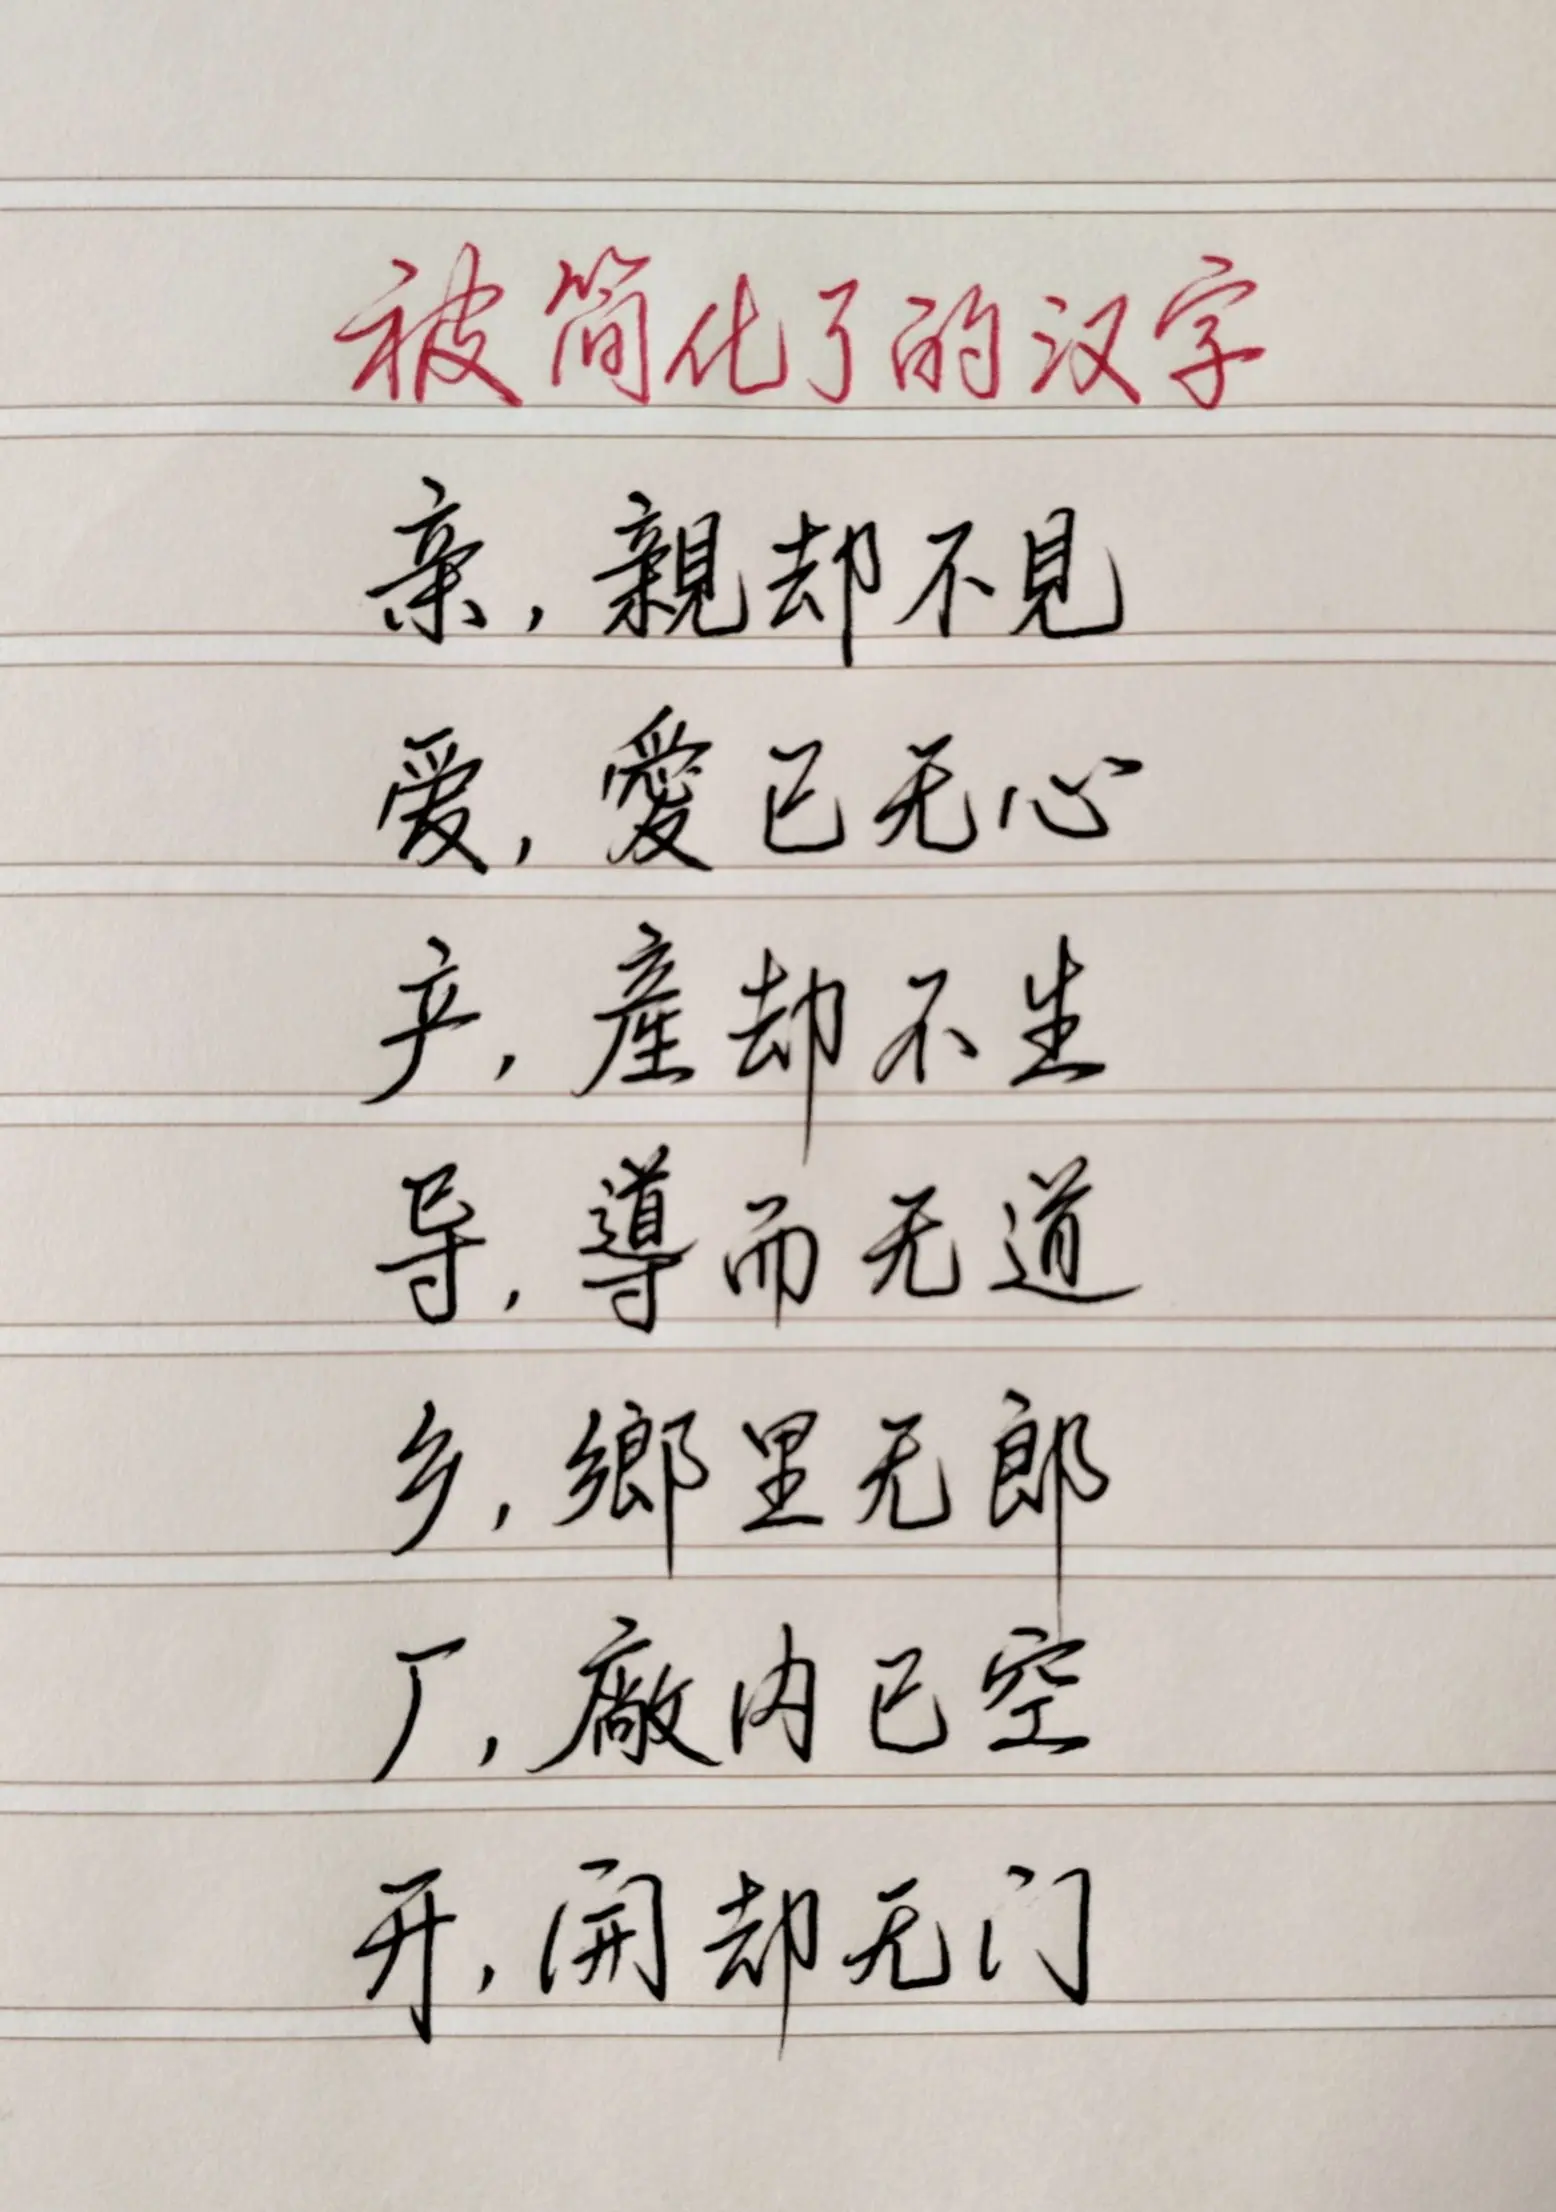 被简化了的汉字
亲,親却不見
爱,愛已无心
产,産却不生
导,導而无道
乡,鄉里无郎
厂,廠内已空
开,開却无门